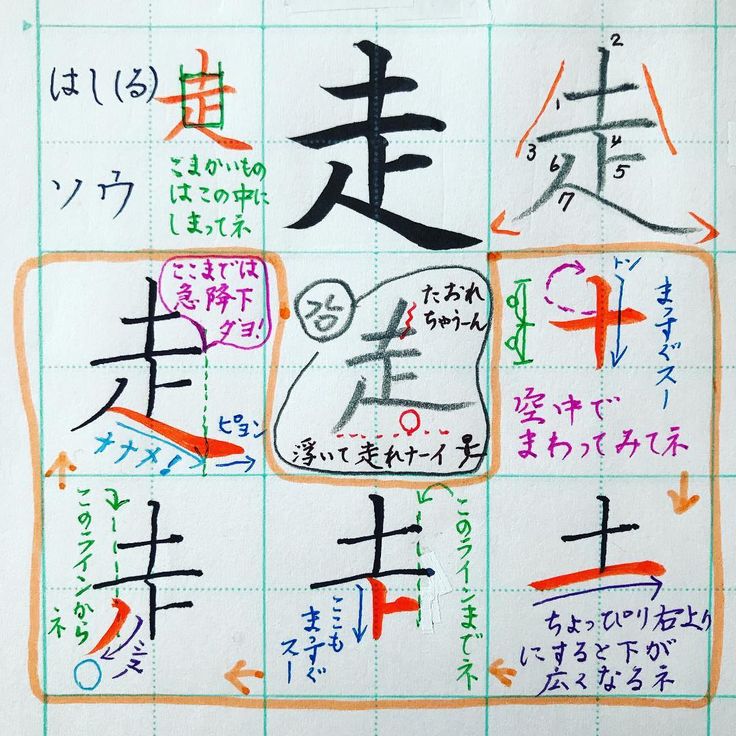 はし(る)
走
こまかいもの
はこの中に
しまってネ
ソウ
走
走
1
2
3
4
5
6
7
ここまでは
急降下
ダヨ!
走
ナナメ!
ピョン
たおれ
ちゃうーん
走
浮いて走れナーイ
十
トン
まっすぐスー
空中で
まわってみてネ
土
ちょっぴり右上り
にすると下が
広くなるネ
このラインまでネ
ここも
まっすぐ
スー
このラインから
ネ